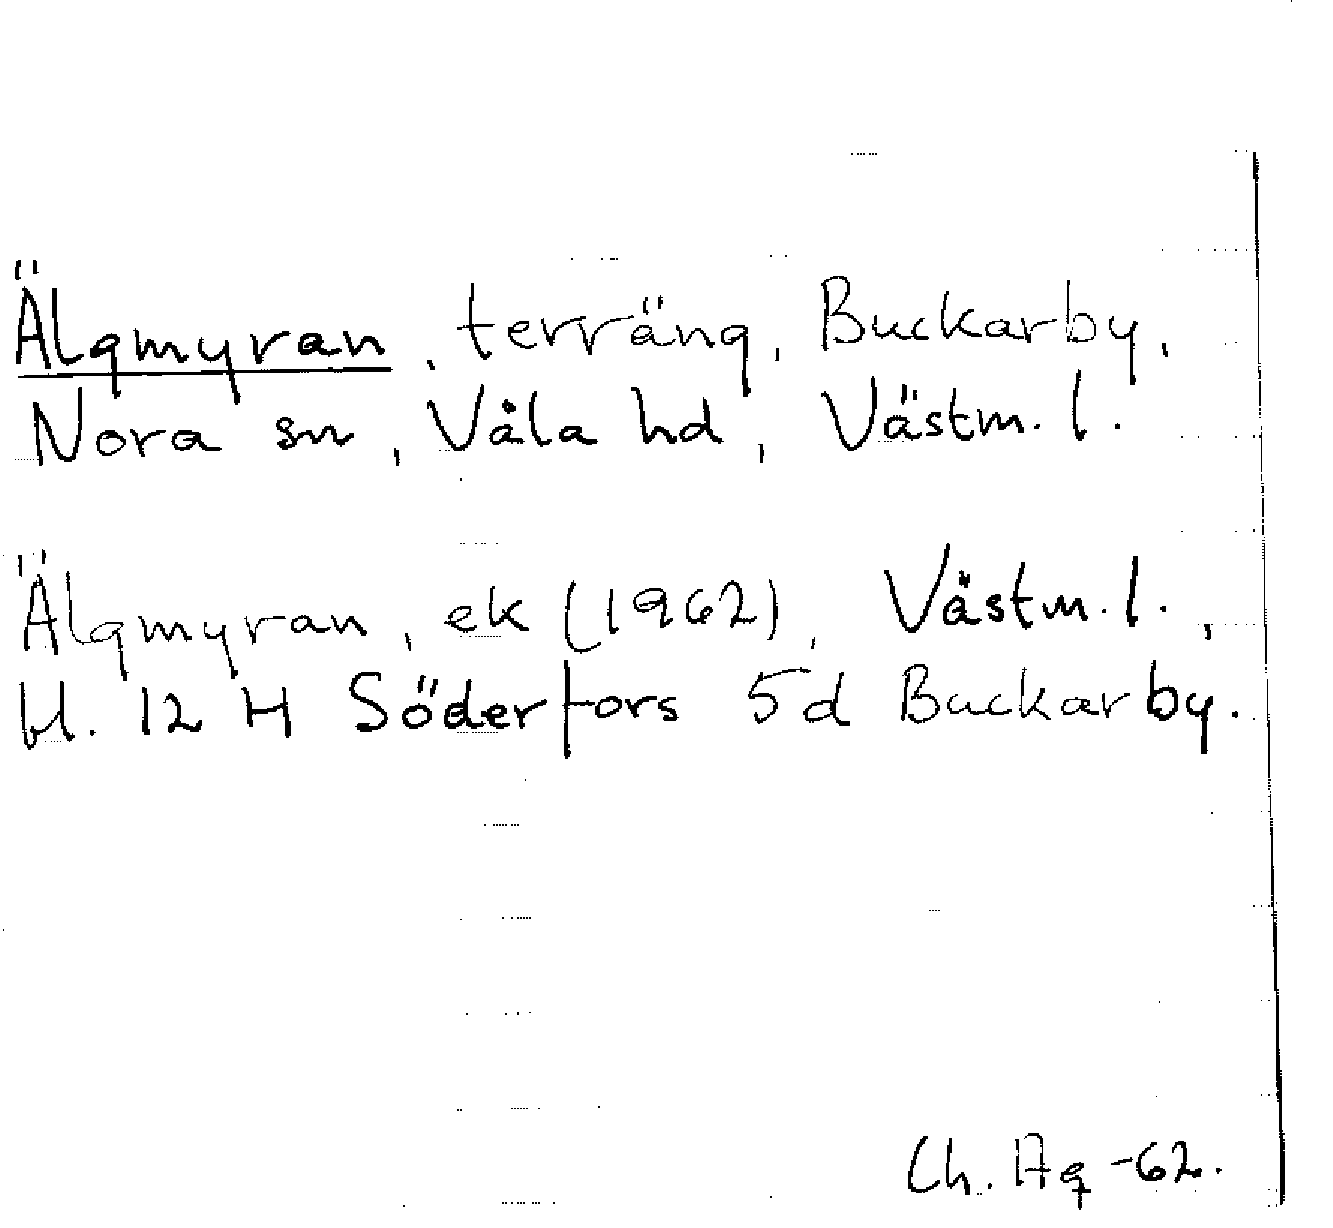 Älgmyran, terräng, Buckarby,
Nora sn, Våla hd, Västm. l.
Älgmyran, ek (1962), Västm. l.,
bl. 12 H Söderfors 5 d Buckarby.
Ch. Ag -62.